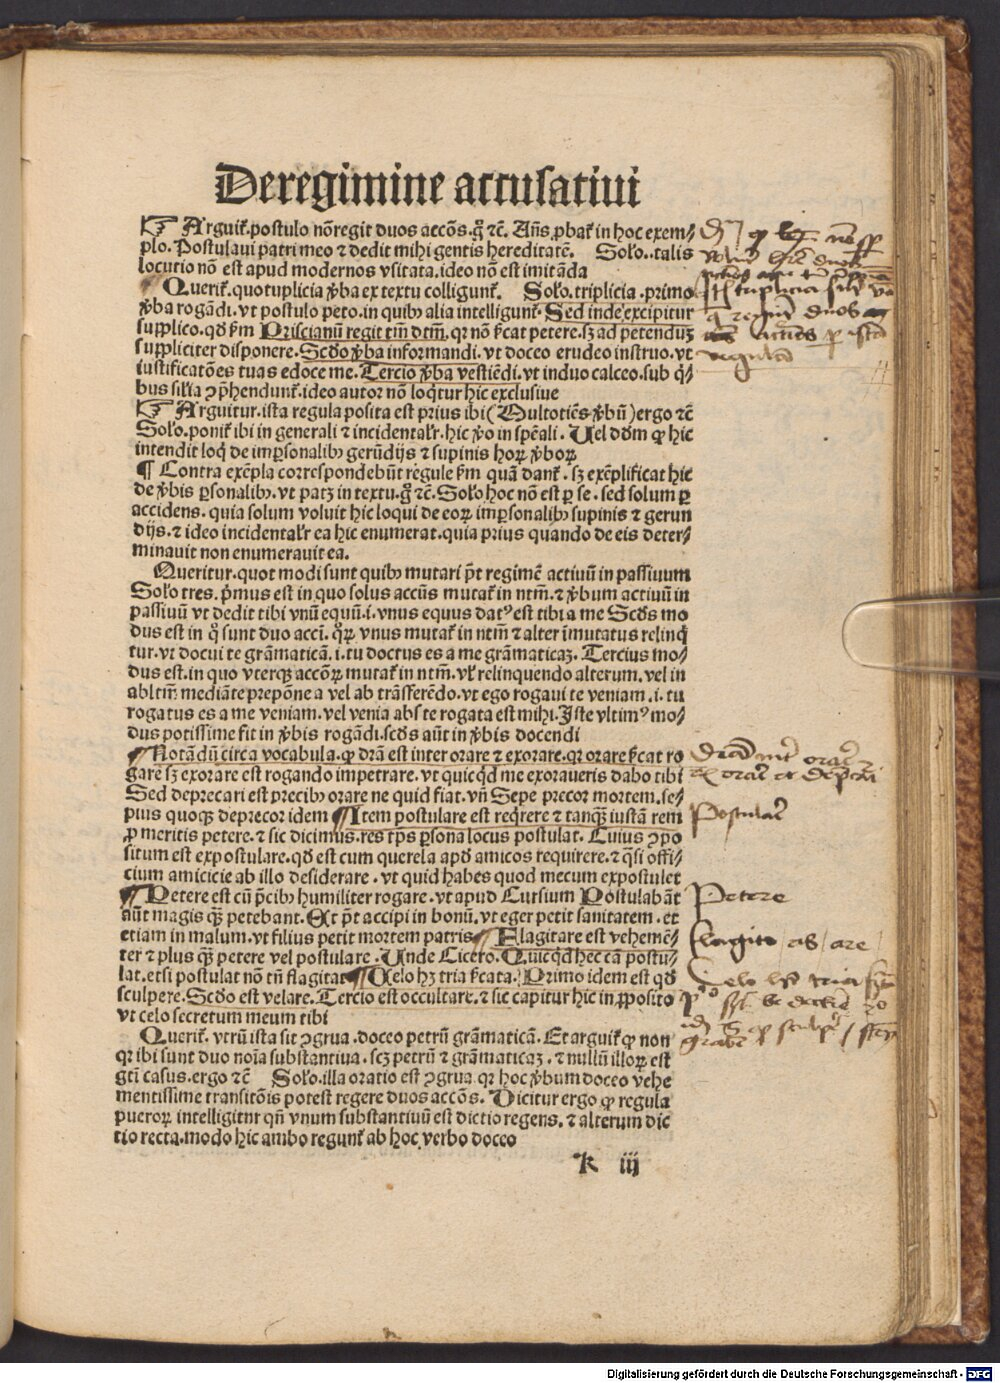 De regimine accusatiui
☞ Arguit̄. postulo nō regit duos accōs. g̊ ⁊c̄. Añs ꝓbat̄ in hoc exem⸗
plo. Postulaui patri meo ⁊ dedit mihi gentis hereditatē. Solo.. talis
locutio nō est apud modernos vsitata. ideo nō est imitāda
Querit̄. quotuplicia v̄ba ex textu colligunt̄. Solo. triplicia. primo
v̄ba rogādi. vt postulo peto. in quibꝰ alia intelligunt̄. Sed inde excipitur
supplico. qđ ẜm Priscianū regit tm̄ dtm̄. qꝛ nō ẜcat petere. sꝫ ad petenduꝫ
suppliciter disponere. Scďo v̄ba informandi. vt doceo erudeo instruo. vt
iustificatōes tuas edoce me. Tercio v̄ba vestiēdi. vt induo calceo. sub q̄⸗
bus sil'ia ꝯp̄hendunt̄. ideo autor nōn loq̄tur hic exclusiue
☞ Arguitur. ista regula posita est prius ibi (Qultotiēs v̄bū) ergo ⁊c̄
Solo. ponit̄ ibi in generali ⁊ incidental'r. hic v̄o in spēali. Uel dđm ꝙ hic
intendit loq̄ de imꝑsonalibꝰ gerūdijs ⁊ supinis hoꝝ v̄boꝝ
¶ Contra exēpla correspondebūt regule ẜm quā dant̄. sꝫ exēplificat hic
de v̄bis ꝑsonalibꝰ. vt patꝫ in textu. g̊ ⁊c̄. Solo hoc nō est ꝑ se. sed solum ꝑ
accidens. quia solum voluit hic loqui de eoꝝ imꝑsonalibꝰ supinis ⁊ gerun
dijs. ⁊ ideo incidental'r ea hic enumerat. quia prius quando de eis deter⸗
minauit non enumerauit ea.
Queritur. quot modi sunt quibꝰ mutari p̄t regimē actiuū in passiuum
Solo tres. p̄mus est in quo solus accūs mutat̄ in ntm̄. ⁊ v̄bum actiuū in
passiuū vt dedit tibi vnū equū. i. vnus equus datꝰ est tibi a me Scđs mo
dus est in q̊ sunt duo acci. q̊ꝝ vnus mutat̄ in ntm̄ ⁊ alter īmutatus relinq̄
tur. vt docui te grāmaticā. i. tu doctus es a me grāmaticaꝫ. Tercius mo⸗
dus est. in quo vterqꝫ accōꝝ mutat̄ in ntm̄. vl' relinquendo alterum. vel in
abltm̄ mediāte prepōne a vel ab trāsferēdo. vt ego rogaui te veniam. i. tu
rogatus es a me veniam. vel venia abs te rogata est mihi. Iste vltimꝰ mo⸗
dus potissime fit in v̄bis rogādi. scđs aūt in v̄bis docendi
¶ Notādū circa vocabula. ꝙ drā est inter orare ⁊ exorare. qꝛ orare ẜcat ro
gare sꝫ exorare est rogando impetrare. vt quicq̄d me exoraueris dabo tibi
Sed deprecari est precibꝰ orare ne quid fiat. vn̄ Sepe precor mortem. se⸗
pius quoqꝫ deprecor idem ¶ Item postulare est req̄rere ⁊ tanq̄ꝫ iustā rem
ꝓ meritis petere. ⁊ sic dicimus. res tp̄s ꝑsona locus postulat. Cuius ꝯpo
situm est expostulare. qđ est cum querela apđ amicos requirere. ⁊ q̄si offi⸗
cium amicicie ab illo desiderare. vt quid habes quod mecum expostulet
¶ Petere est cū p̄cibꝰ humiliter rogare. vt apud Cursium Postulabāt
aūt magis q̄ꝫ petebant. Et p̄t accipi in bonū. vt eger petit sanitatem. et
etiam in malum. vt filius petit mortem patris ¶ Flagitare est vehemē⸗
ter ⁊ plus q̄ꝫ petere vel postulare. Unde Cicero. Quicq̄d hec cā postu⸗
lat. etsi postulat nō tn̄ flagitat ¶ Celo hꝫ tria ẜcata. Primo idem est qđ
sculpere. Scđo est velare. Tercio est occultare. ⁊ sic capitur hic in ꝓposito
vt celo secretum meum tibi
Querit̄. vtrū ista sit ꝯgrua. doceo petrū grāmaticā. Et arguit̄ ꝙ non
qꝛ ibi sunt duo noīa substantiua. scꝫ petrū ⁊ grāmaticaꝫ. ⁊ nullū illoꝝ est
gt̄i casus. ergo ⁊c̄ Solo. illa oratio est ꝯgrua qꝛ hoc v̄bum doceo vehe
mentissime transitōis potest regere duos accōs. Dicitur ergo ꝙ regula
pueroꝝ intelligitur qn̄ vnum substantiuū est dictio regens. ⁊ alterum dic
tio recta. modo hic ambo regunt̄ ab hoc verbo doceo
k iij
Postulare
Petere
flagito as are
Digitalisierung gefördert durch die Deutsche Forschungsgemeinschaft - DFG